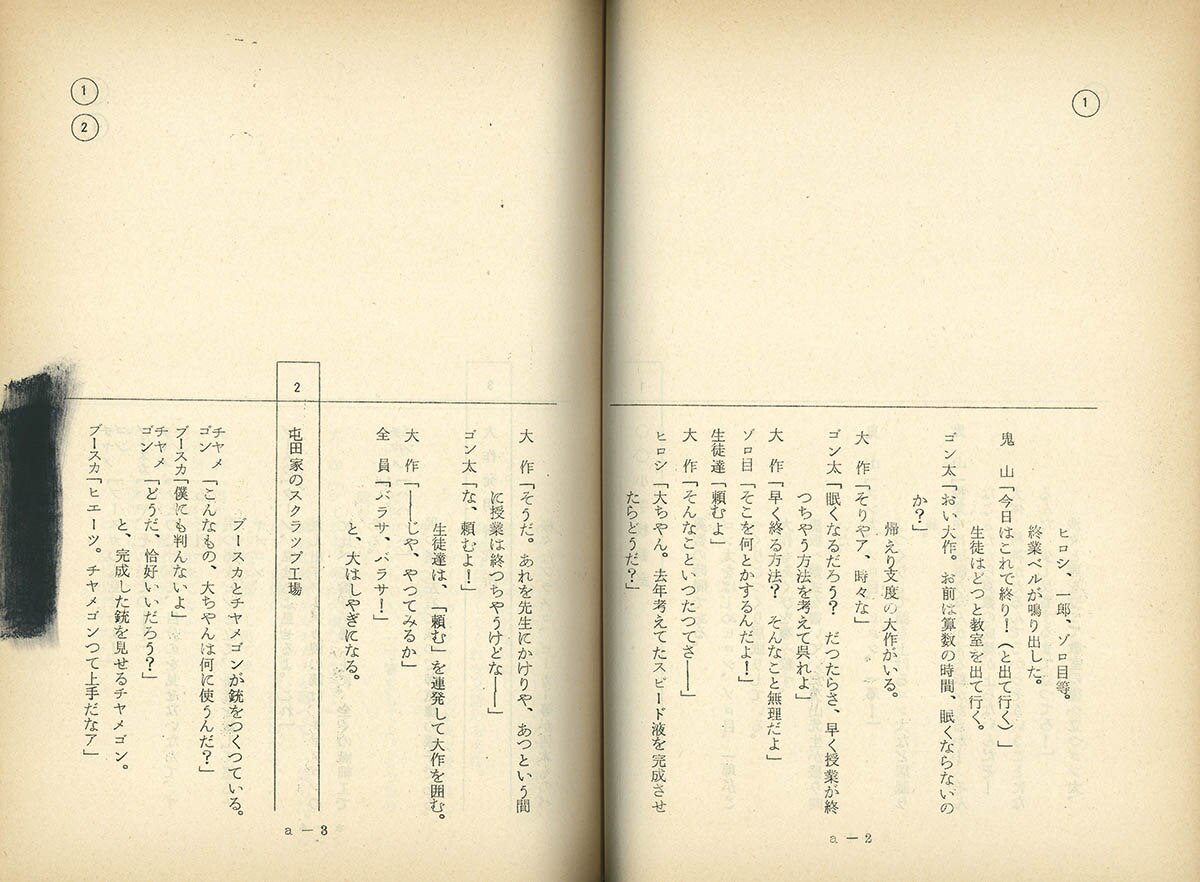 ①
ヒロシ、一郎、ゾロ目等。
終業ベルが鳴り出した。
鬼　山「今日はこれで終り！（と出て行く）」
生徒はどつと教室を出て行く。
ゴン太「おい大作。お前は算数の時間、眠くならないの
か？」
帰えり支度の大作がいる。
大　作「そりやア、時々な」
ゴン太「眠くなるだろう？　だつたらさ、早く授業が終
つちやう方法を考えて呉れよ」
大　作「早く終る方法？　そんなこと無理だよ」
ゾロ目「そこを何とかするんだよ！」
生徒達「頼むよ」
大　作「そんなこといつたつてさ――」
ヒロシ「大ちやん。去年考えてたスピード液を完成させ
たらどうだ？」
a－2
①
②
大　作「そうだ。あれを先生にかけりや、あつという間
に授業は終つちやうけどな――」
ゴン太「な、頼むよ！」
生徒達は、「頼む」を連発して大作を囲む。
大　作「――じや、やつてみるか」
全　員「バラサ、バラサ！」
と、大はしやぎになる。
2　屯田家のスクラップ工場
ブースカとチヤメゴンが銃をつくつている。
チヤメゴン「こんなもの、大ちやんは何に使うんだ？」
ブースカ「僕にも判んないよ」
チヤメゴン「どうだ、恰好いいだろう？」
と、完成した銃を見せるチヤメゴン。
ブースカ「ヒエーツ。チヤメゴンつて上手だなア」
a－3